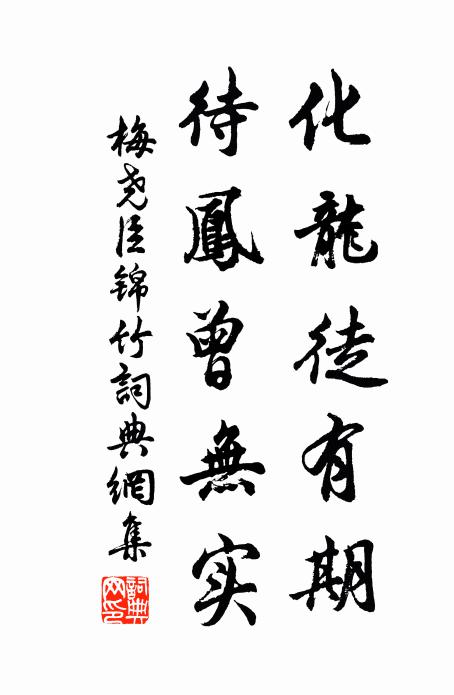 化龍徒有期
待鳳曾無实
梅尧臣锦竹詞典網集
詞典网印